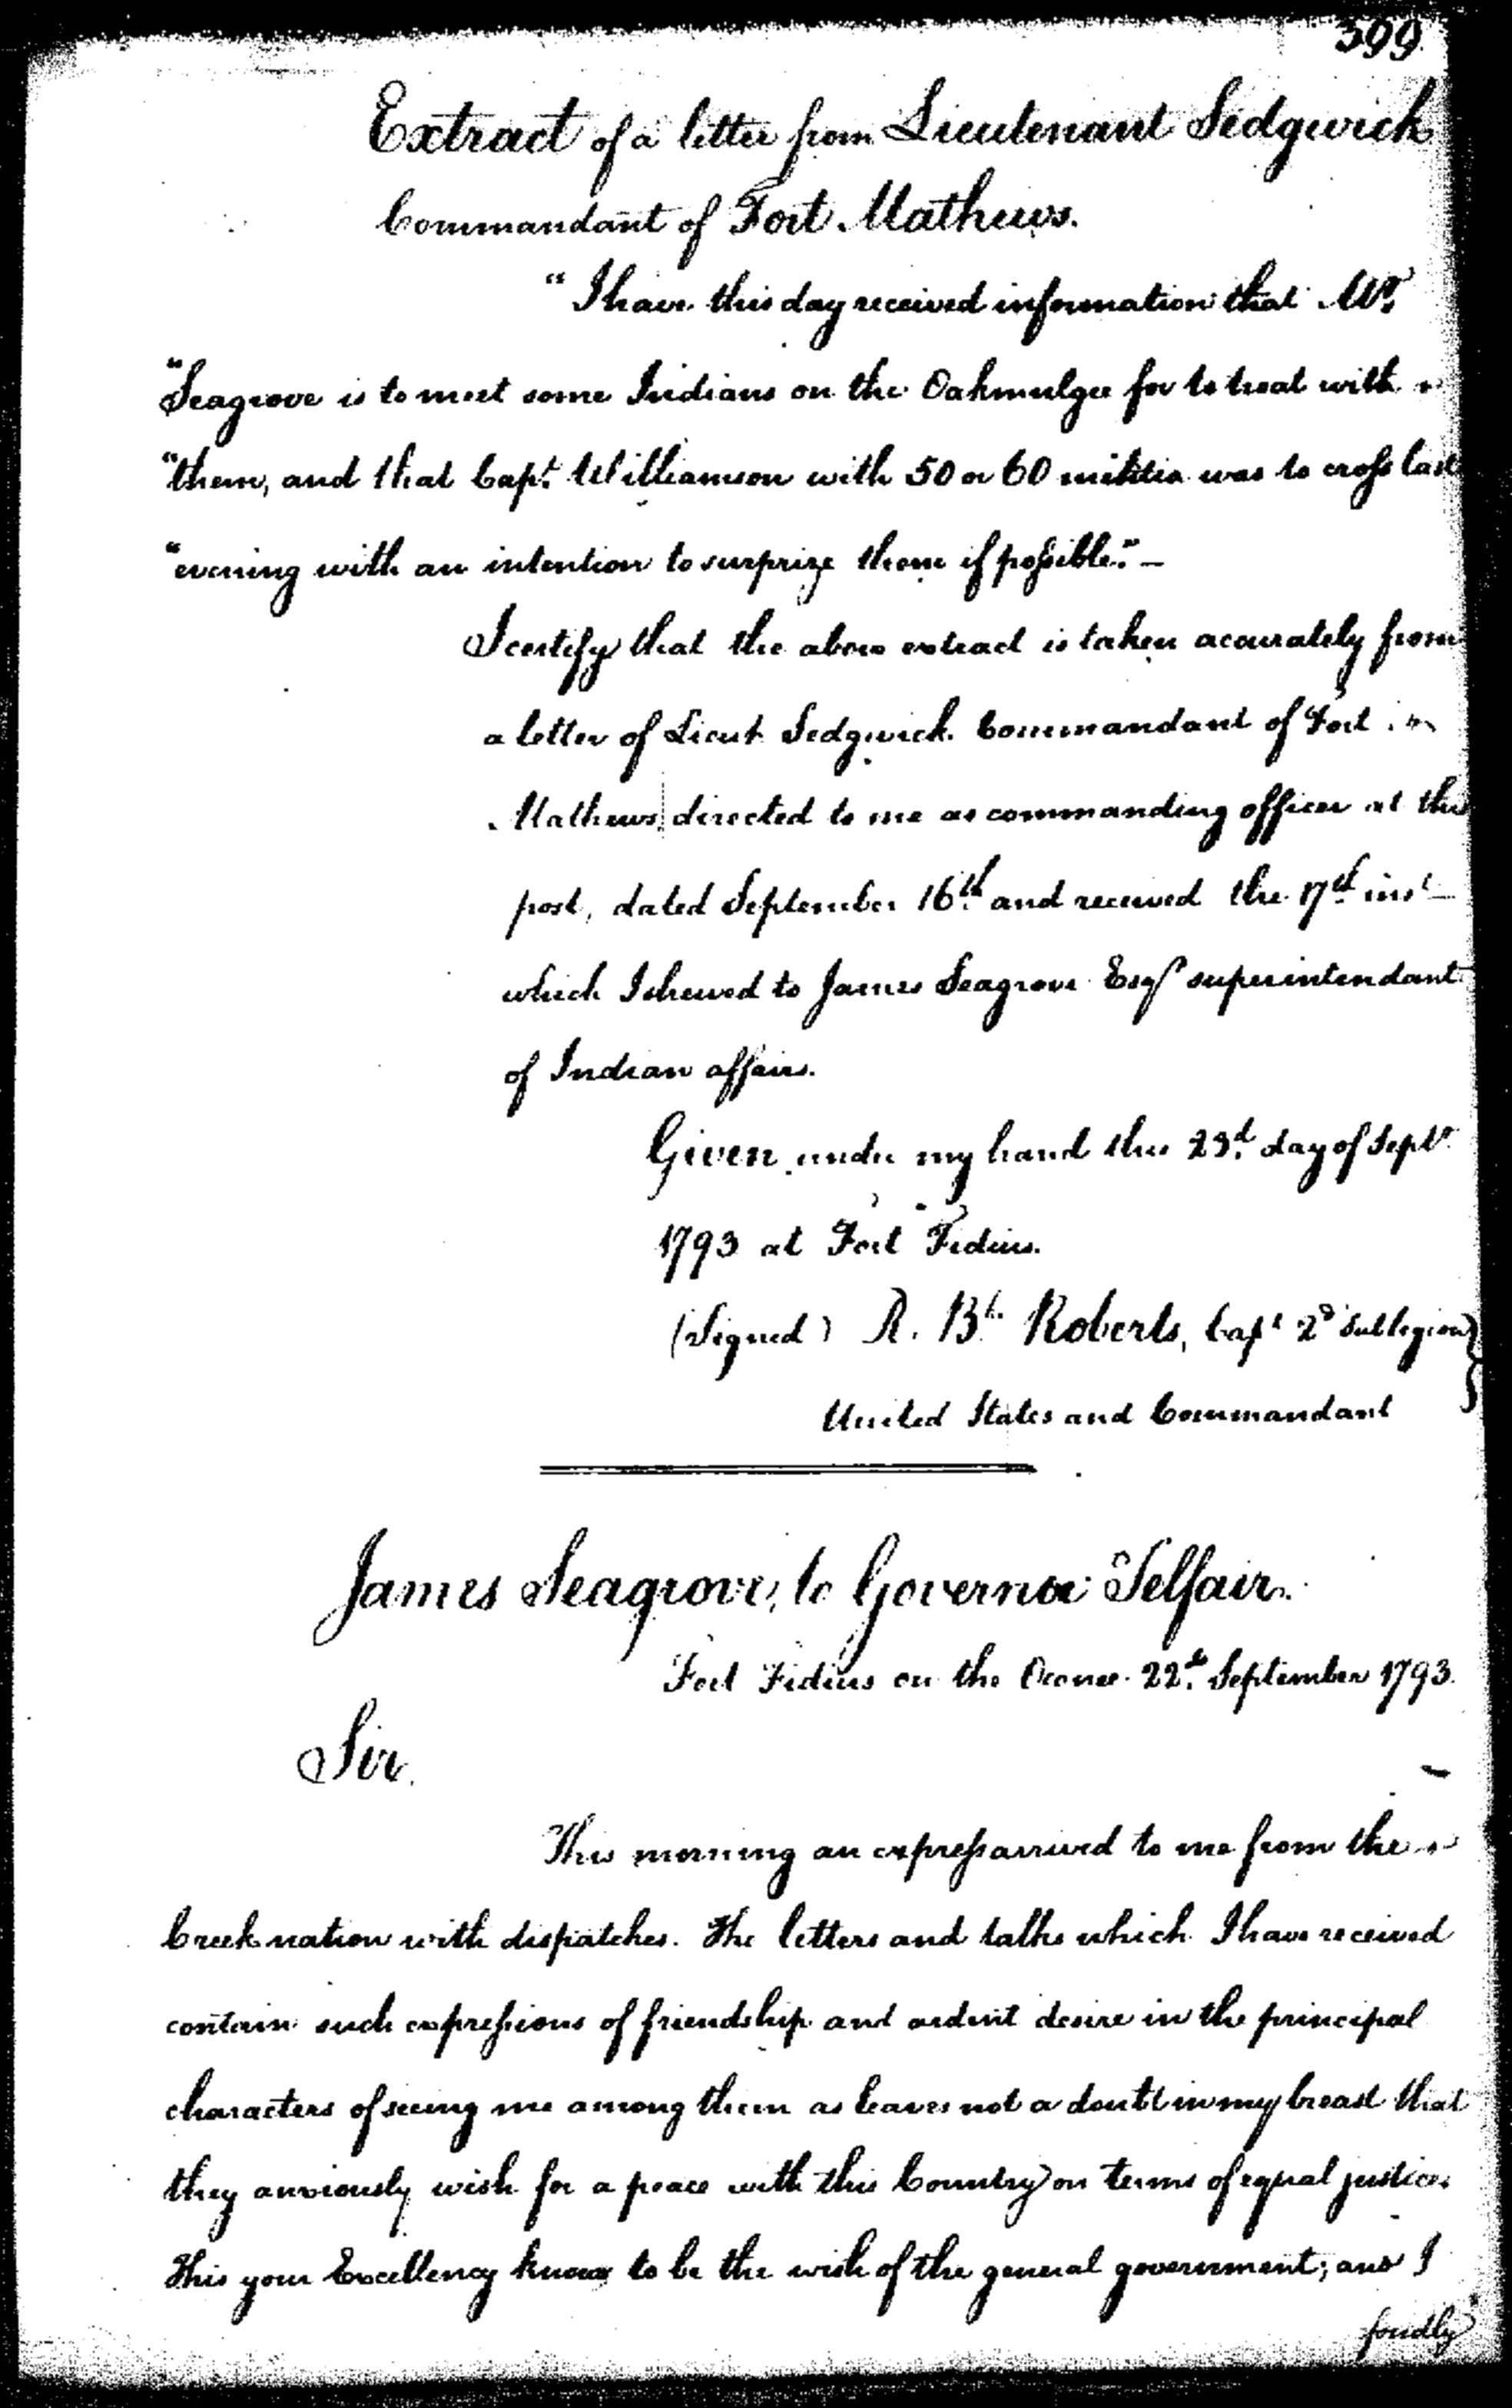 399
Extract of a letter from Lieutenant Sedgwick
Commandant of Fort Mathews.
"I have this day received information that Mr.
"Seagrove is to meet some Indians on the Oakmulgee for to treat with
"them, and that Capt. Williamson with 50 or 60 militia was to cross last
"evening with an intention to surprize them if possible." —
I certify that the above extract is taken accurately from
a letter of Lieut. Sedgwick Commandant of Fort
Mathews, directed to me as commanding officer at this
post, dated September 16th. and received the 17th. inst
which I shewed to James Seagrove Esqr superintendant
of Indian affairs.
Given under my hand this 23d. day of Septr.
1793 at Fort Fidius.
(Signed) R. Bn. Roberts, Capt 2d Sublegion
United States and Commandant
James Seagrove, to Governor Telfair.
Fort Fidius on the Oconee 22d. September 1793.
Sir.
This morning an express arrived to me from the
Creek nation with dispatches. The letters and talks which I have received
contain such expressions of friendship and ardent desire in the principal
characters of seeing me among them as leaves not a doubt in my breast that
they anxiously wish for a peace with this Country on terms of equal justice.
This your Excellency knows to be the wish of the general government; and I
fondly